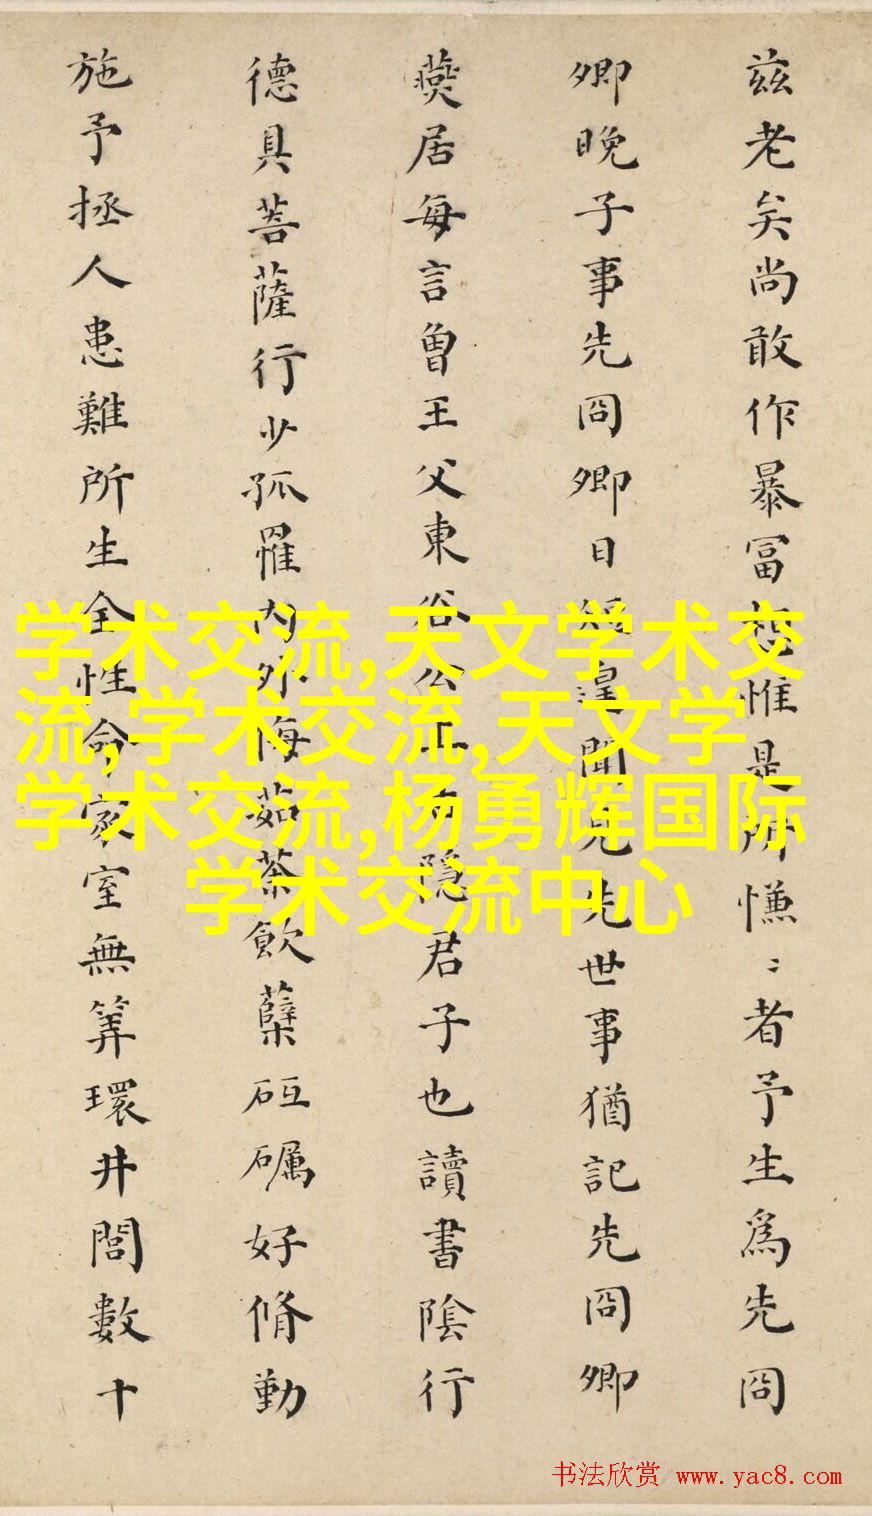 兹老矣尚敢作暴冨想惟是所慊〻者予生為先冏
卿晚子事先冏卿日短遑聞見先世事猶記先冏卿
䕼居每言曾王父東谷公隱君子也讀書陰行
德具菩薩行少孤罹内外侮茹荼飲蘖砥礪好脩勤
施予拯人患難所生全性命家室無筭環井閭數十
学术交流,天文学术交
流,学术交流,天文学
学术交流,杨勇辉国际
学术交流中心
书法欣赏 www.yac8.com